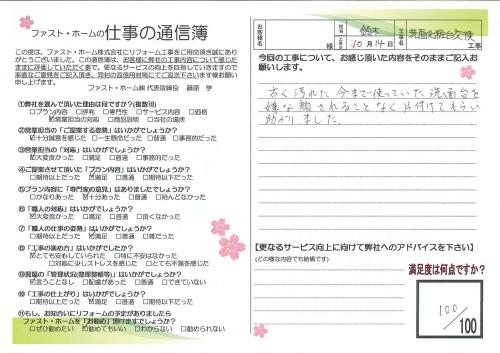 ファスト・ホームの仕事の通信簿
この度は、ファスト・ホーム株式会社にリフォーム工事をご用命頂き誠にあり
がとうございました。この通信簿は、お客様に弊社の工事内容について感じた
ままに評価していただく事で、更なるサービスの向上を目指していきますので
率直なご意見をご記入頂き、同封の返信用封筒にてご返送下さいます様お願い
申し上げます。
ファスト・ホーム㈱ 代表取締役 藤原 学
①弊社を選んで頂いた理由は何ですか?(複数可)
□プラン内容 □評判 □専門性 □サービス内容 □価格
☑営業担当の対応 □商品説明 □当社の場所
②営業担当の「ご提案する姿勢」はいかがでしょうか?
☑十分誠意を感じた □一生懸命だった □普通 □事務的だった
③営業担当の「対応」はいかがでしょうか?
☑大変良かった □満足 □普通 □事務的だった
④ご提案させて頂いた「プラン内容」はいかがでしょうか?
□期待以上だった ☑満足 □普通 □期待以下だった
⑤プラン内容に「専門家の意見」はありましたでしょうか?
□かなりあった ☑十分あった □普通 □殆んどなかった
⑥「職人の対応」はいかがでしょうか?
☑大変良かった □満足 □普通 □良くなかった
⑦「職人の仕事の姿勢」はいかがでしょうか?
□期待以上だった ☑満足 □普通 □雑だった
⑧「工事の進め方」はいかがでしたか?
☑とても安心していられた □特に不安はなかった
□対応に少しストレスを感じた □とても不満を感じた
⑨現場の「管理状況(整理整頓等)」はいかがでしょうか?
☑言うことなし □配慮があった □普通 □できていない
⑩「工事の仕上がり」はいかがでしょうか?
□期待以上だった ☑満足 □普通 □期待以下だった
⑪もし、お知合いにリフォームの予定がありましたら
ファスト・ホームを「お勧め」頂けますでしょうか?
□ぜひ勧めたい ☑勧めてもいい □わからない □勧められない
お客様名
様
担当 鈴木
工事日 10月14日
工事名 洗面化粧台交換
工事
今回の工事について、お感じ頂いた内容をそのままご記入お
願いします。
古く汚れた今まで使っていた洗面台を
嫌な顔されることなく片付けてもらい
助かりました。
【更なるサービス向上に向けて弊社へのアドバイスを下さい】
(どの様な内容でも結構です)
満足度は何点ですか?
100/100